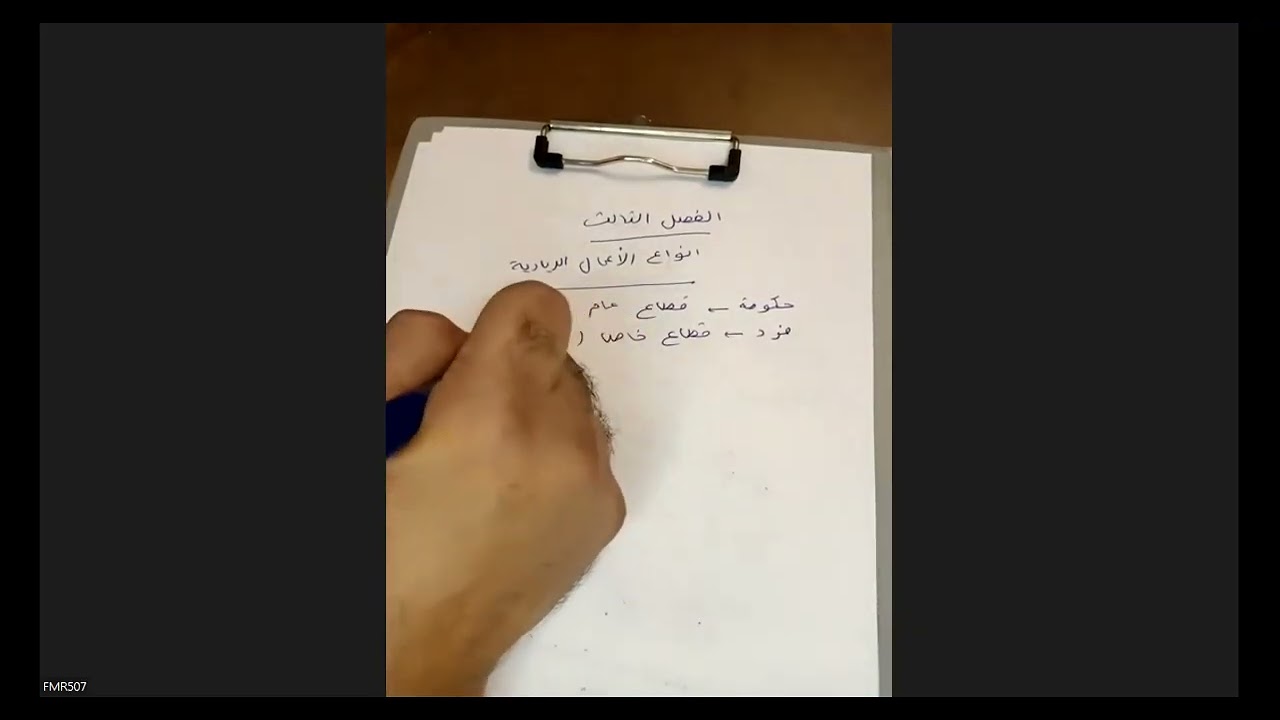 الفصل الثالث
انواع الأعمال الريادية
حكومة ← قطاع عام
فرد ← قطاع خاص (
FMR507